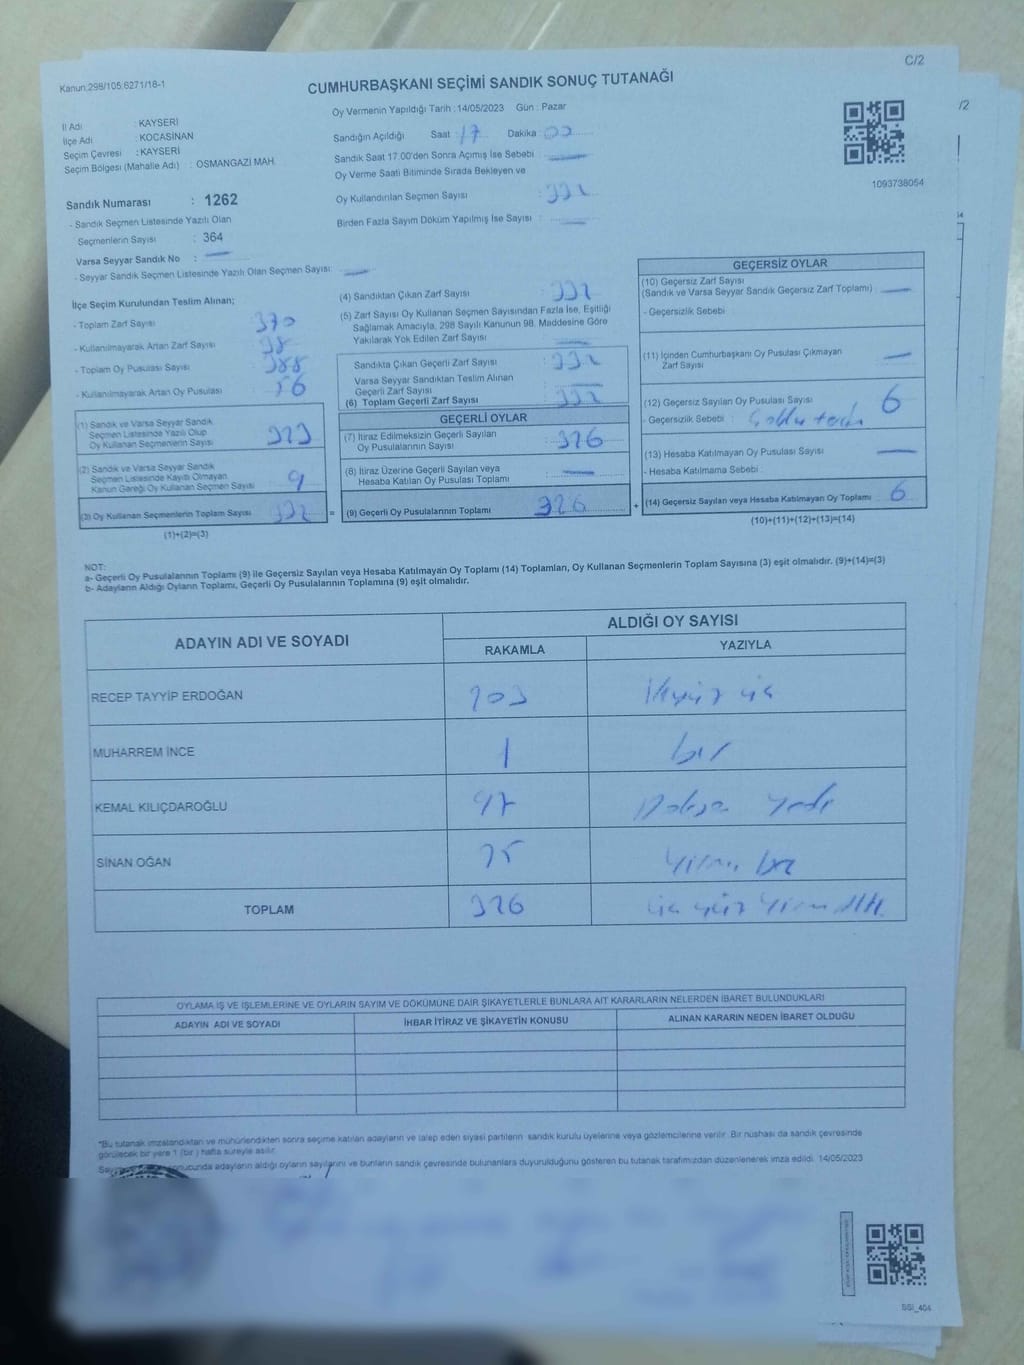 C/2
Kanun:298/105,6271/18-1
CUMHURBAŞKANI SEÇİMİ SANDIK SONUÇ TUTANAĞI
/2
Oy Vermenin Yapıldığı Tarih :14/05/2023 Gün : Pazar
İl Adı : KAYSERİ
İlçe Adı : KOCASİNAN
Seçim Çevresi : KAYSERİ
Seçim Bölgesi (Mahalle Adı) : OSMANGAZİ MAH.
Sandığın Açıldığı Saat : 17 Dakika : 00
Sandık Saat 17.00'den Sonra Açımış İse Sebebi :
Oy Verme Saati Bitiminde Sırada Bekleyen ve
Oy Kullandırılan Seçmen Sayısı : 332
Birden Fazla Sayım Döküm Yapılmış İse Sayısı :
1093738054
Sandık Numarası : 1262
- Sandık Seçmen Listesinde Yazılı Olan
Seçmenlerin Sayısı : 364
Varsa Seyyar Sandık No :
- Seyyar Sandık Seçmen Listesinde Yazılı Olan Seçmen Sayısı:
İlçe Seçim Kurulundan Teslim Alınan;
- Toplam Zarf Sayısı 370
- Kullanılmayarak Artan Zarf Sayısı 38
- Toplam Oy Pusulası Sayısı 388
- Kullanılmayarak Artan Oy Pusulası 56
(1) Sandık ve Varsa Seyyar Sandık
Seçmen Listesinde Yazılı Olup
Oy Kullanan Seçmenlerin Sayısı 323
(2) Sandık ve Varsa Seyyar Sandık
Seçmen Listesinde Kayıtlı Olmayan
Kanun Gereği Oy Kullanan Seçmen Sayısı 9
(3) Oy Kullanan Seçmenlerin Toplam Sayısı 332
(1)+(2)=(3)
(4) Sandıktan Çıkan Zarf Sayısı : 332
(5) Zarf Sayısı Oy Kullanan Seçmen Sayısından Fazla İse, Eşitliği
Sağlamak Amacıyla, 298 Sayılı Kanunun 98. Maddesine Göre
Yakılarak Yok Edilen Zarf Sayısı :
Sandıkta Çıkan Geçerli Zarf Sayısı : 332
Varsa Seyyar Sandıktan Teslim Alınan
Geçerli Zarf Sayısı :
(6) Toplam Geçerli Zarf Sayısı : 332
GEÇERLİ OYLAR
(7) İtiraz Edilmeksizin Geçerli Sayılan
Oy Pusulalarının Sayısı : 326
(8) İtiraz Üzerine Geçerli Sayılan veya
Hesaba Katılan Oy Pusulası Toplamı :
= (9) Geçerli Oy Pusulalarının Toplamı 326 +
GEÇERSİZ OYLAR
(10) Geçersiz Zarf Sayısı
(Sandık ve Varsa Seyyar Sandık Geçersiz Zarf Toplamı) :
- Geçersizlik Sebebi :
(11) İçinden Cumhurbaşkanı Oy Pusulası Çıkmayan
Zarf Sayısı :
(12) Geçersiz Sayılan Oy Pusulası Sayısı : 6
- Geçersizlik Sebebi :
(13) Hesaba Katılmayan Oy Pusulası Sayısı :
- Hesaba Katılmama Sebebi :
(14) Geçersiz Sayılan veya Hesaba Katılmayan Oy Toplamı : 6
(10)+(11)+(12)+(13)=(14)
NOT:
a- Geçerli Oy Pusulalarının Toplamı (9) ile Geçersiz Sayılan veya Hesaba Katılmayan Oy Toplamı (14) Toplamları, Oy Kullanan Seçmenlerin Toplam Sayısına (3) eşit olmalıdır. (9)+(14)=(3)
b- Adayların Aldığı Oyların Toplamı, Geçerli Oy Pusulalarının Toplamına (9) eşit olmalıdır.
ADAYIN ADI VE SOYADI
ALDIĞI OY SAYISI
RAKAMLA YAZIYLA
RECEP TAYYİP ERDOĞAN 203 ikiyüz üç
MUHARREM İNCE 1 bir
KEMAL KILIÇDAROĞLU 97 Doksan yedi
SİNAN OĞAN 25 Yirmi beş
TOPLAM 326 üç yüz yirmi altı
OYLAMA İŞ VE İŞLEMLERİNE VE OYLARIN SAYIM VE DÖKÜMÜNE DAİR ŞİKAYETLERLE BUNLARA AİT KARARLARIN NELERDEN İBARET BULUNDUKLARI
ADAYIN ADI VE SOYADI İHBAR İTİRAZ VE ŞİKAYETİN KONUSU ALINAN KARARIN NEDEN İBARET OLDUĞU
*Bu tutanak imzalandıktan ve mühürlendikten sonra seçime katılan adayların ve talep eden siyasi partilerin sandık kurulu üyelerine veya gözlemcilerine verilir. Bir nüshası da sandık çevresinde
görülecek bir yere 1 (bir ) hafta süreyle asılır.
sonucunda adayların aldığı oyların sayılarını ve bunların sandık çevresinde bulunanlara duyurulduğunu gösteren bu tutanak tarafımızdan düzenlenerek imza edildi. 14/05/2023
SSI_404